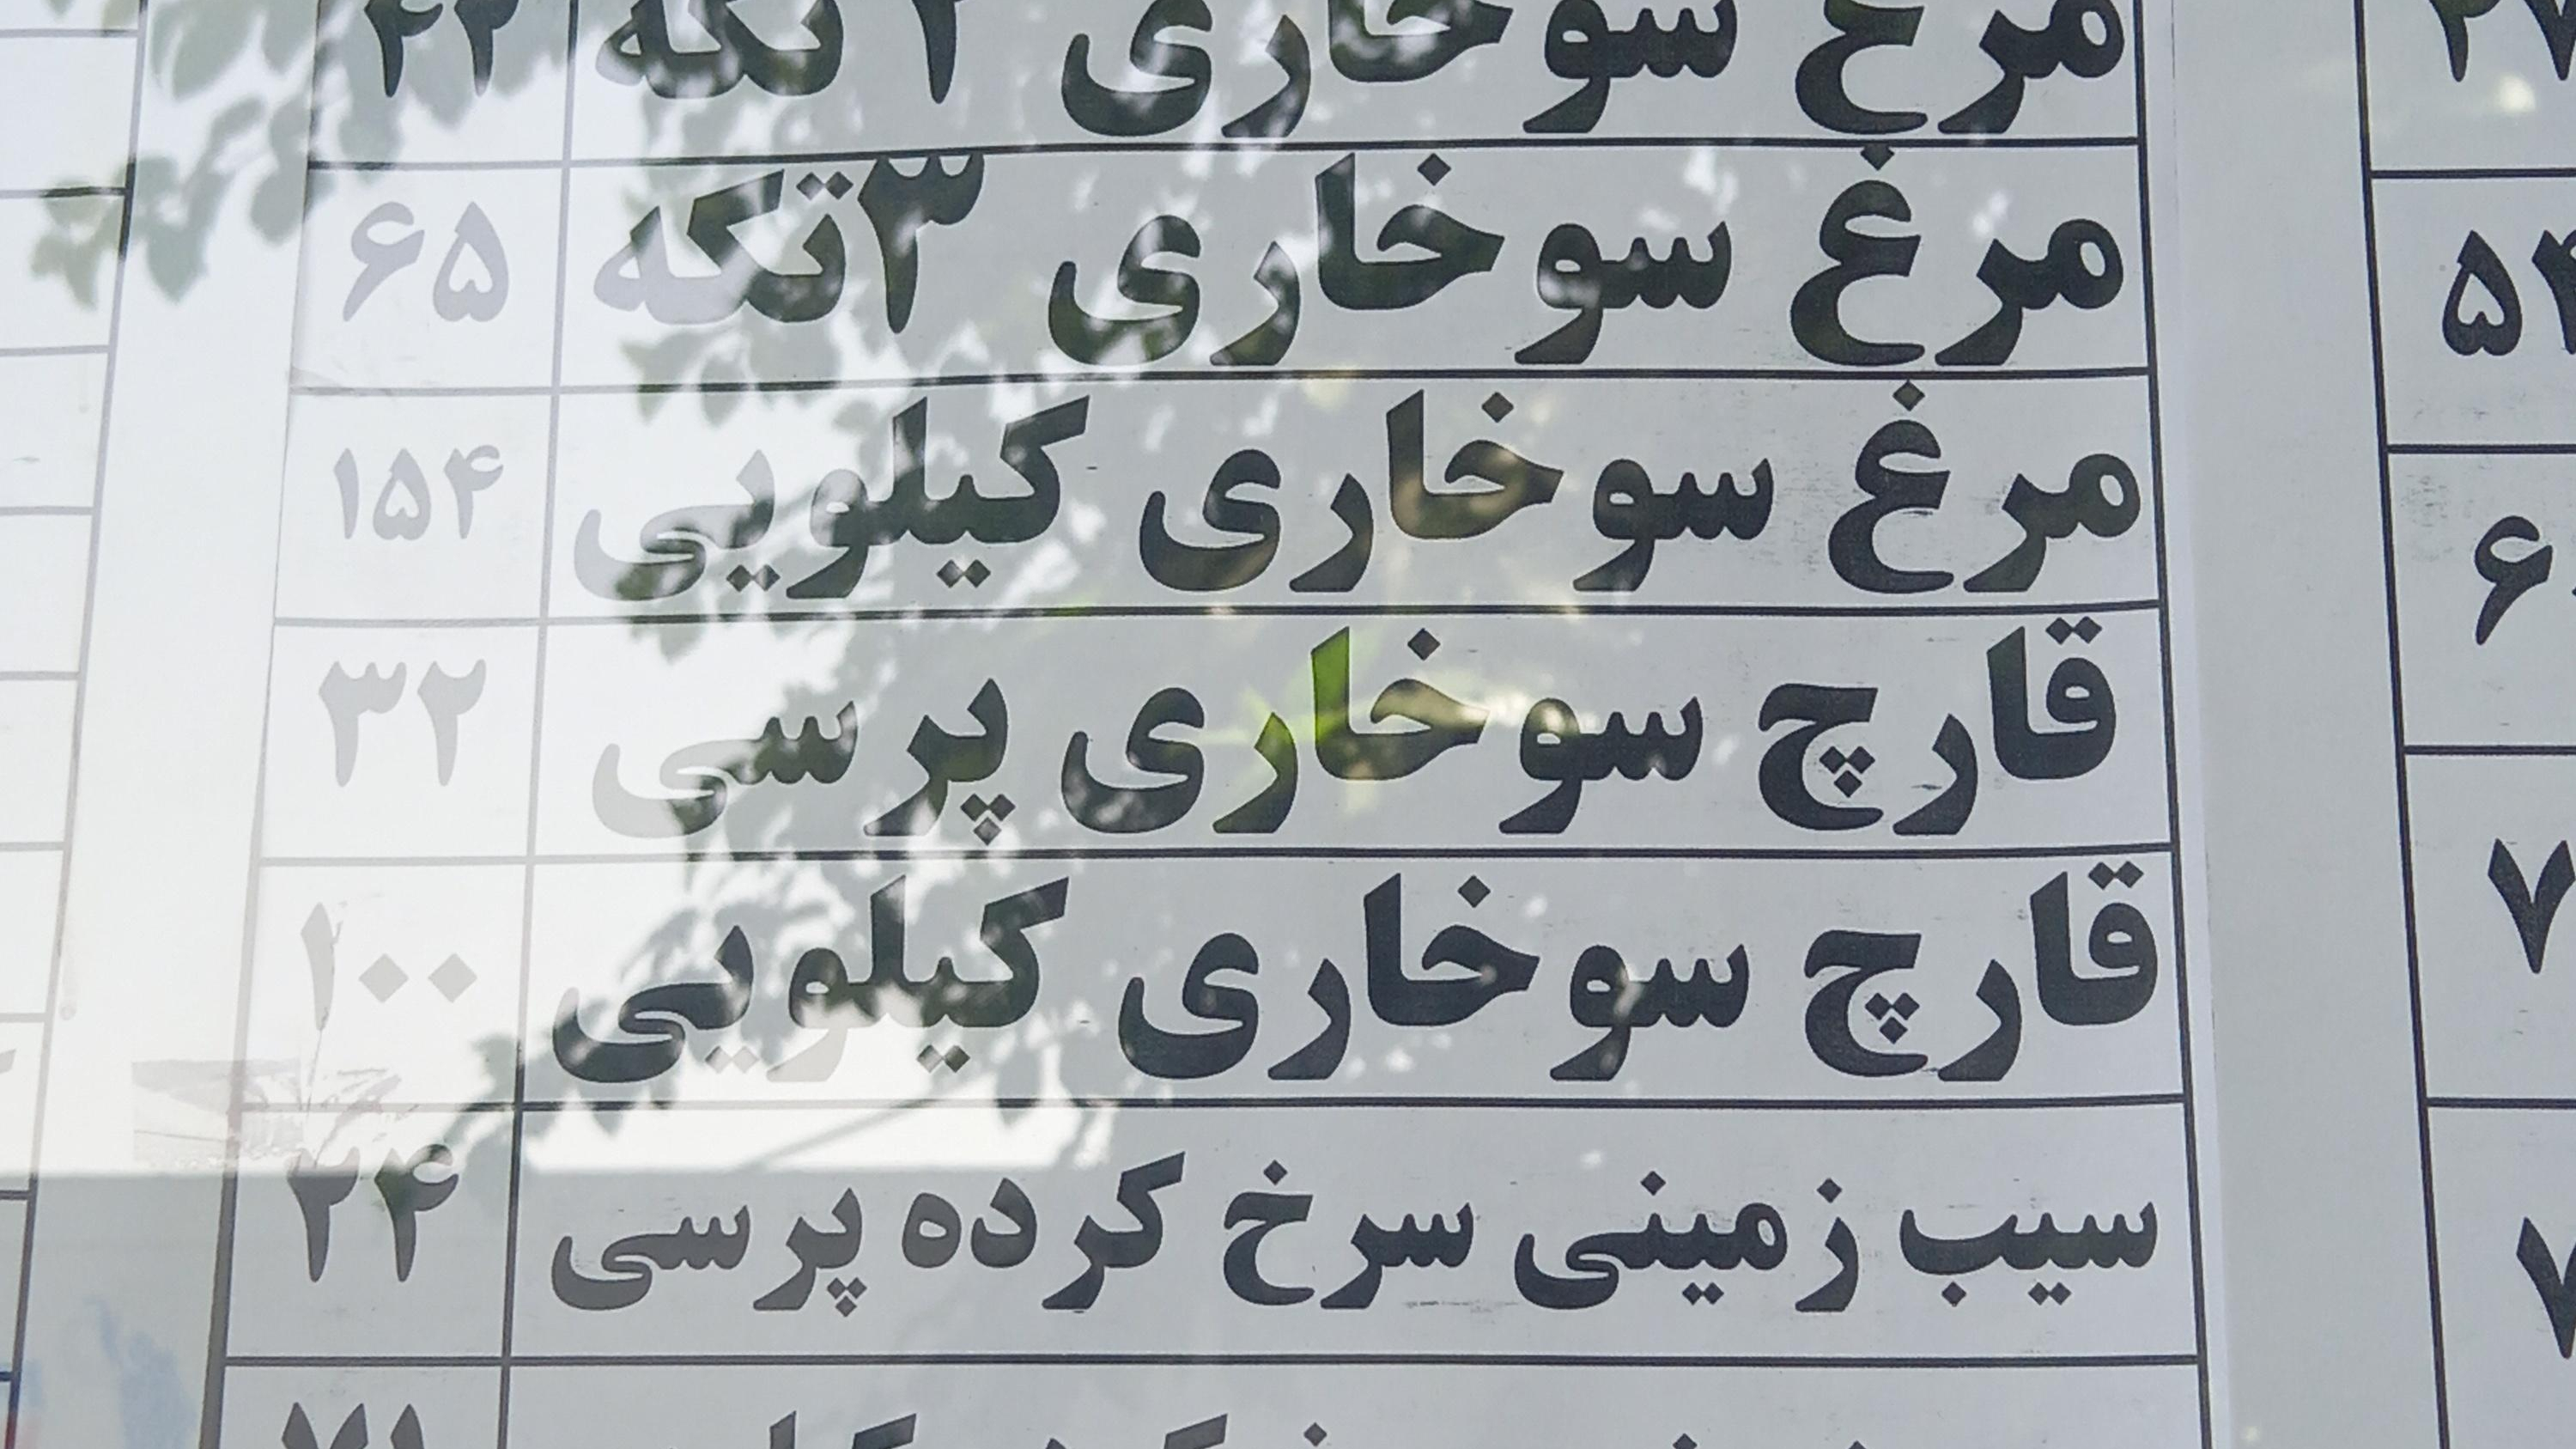 مرغ سوخاری ۲ تکه
مرغ سوخاری ۳تکه ۶۵
مرغ سوخاری کیلویی ۱۵۴
قارچ سوخاری پرسی ۳۲
قارچ سوخاری کیلویی ۱۰۰
سیب زمینی سرخ کرده پرسی ۲۴